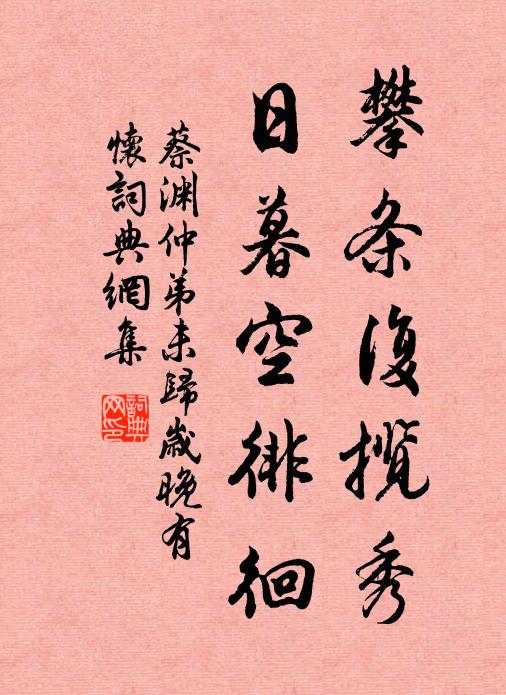 攀条復攬秀
日暮空徘徊
蔡渊仲弟未歸歲晚有
懷詞典網集
詞典网印